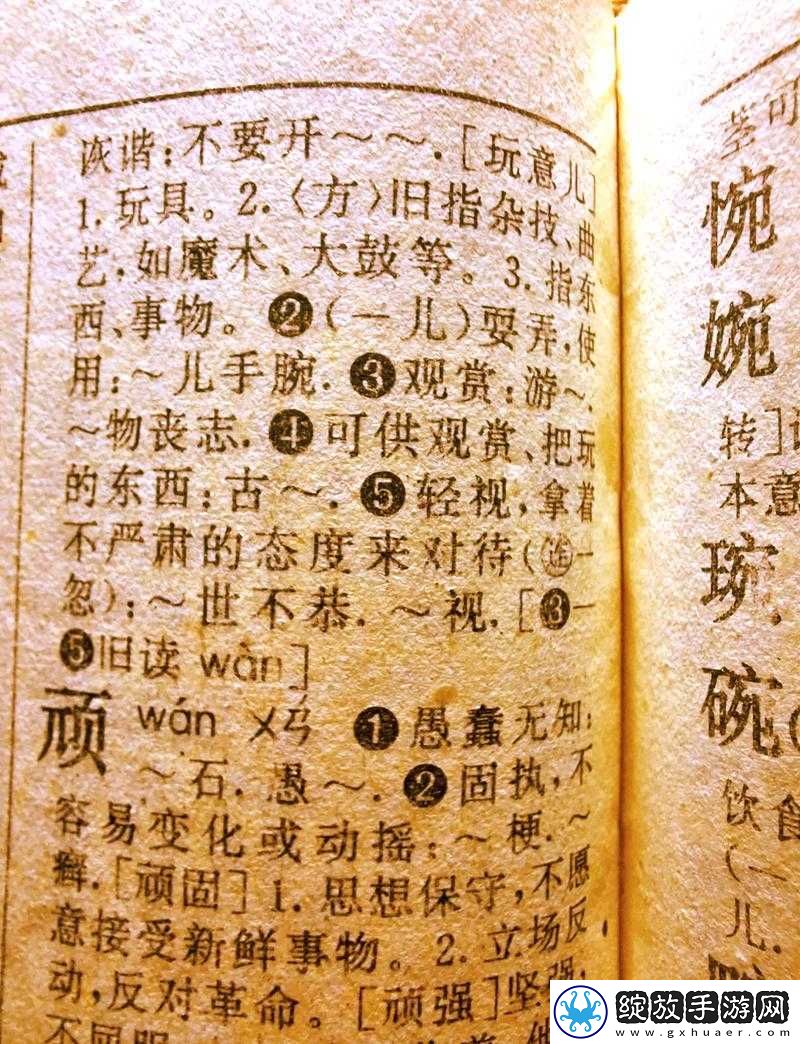 诙谐:不要开～～.[玩意儿]
1.玩具。2.〈方〉旧指杂技、曲
艺,如魔术、大鼓等。3.指东
西、事物。❷(一儿)耍弄,使
用:～儿手腕.❸观赏:游～.
～物丧志.❹可供观赏、把玩
的东西:古～.❺轻视,拿着
不严肃的态度来对待(㊣一
忽):～世不恭.～视.[❸一
❺旧读wàn]
顽 wán ㄨㄢˊ ❶愚蠢无知:
～石.愚～.❷固执,不
容易变化或动摇:～梗.～
癣.[顽固]1.思想保守,不愿
意接受新鲜事物。2.立场反
动,反对革命。[顽强]坚强,
不屈服
茎可
惋
婉
转]
本意
琬
碗
饮食
(一
儿.
绽放手游网
www.gxhuaer.com